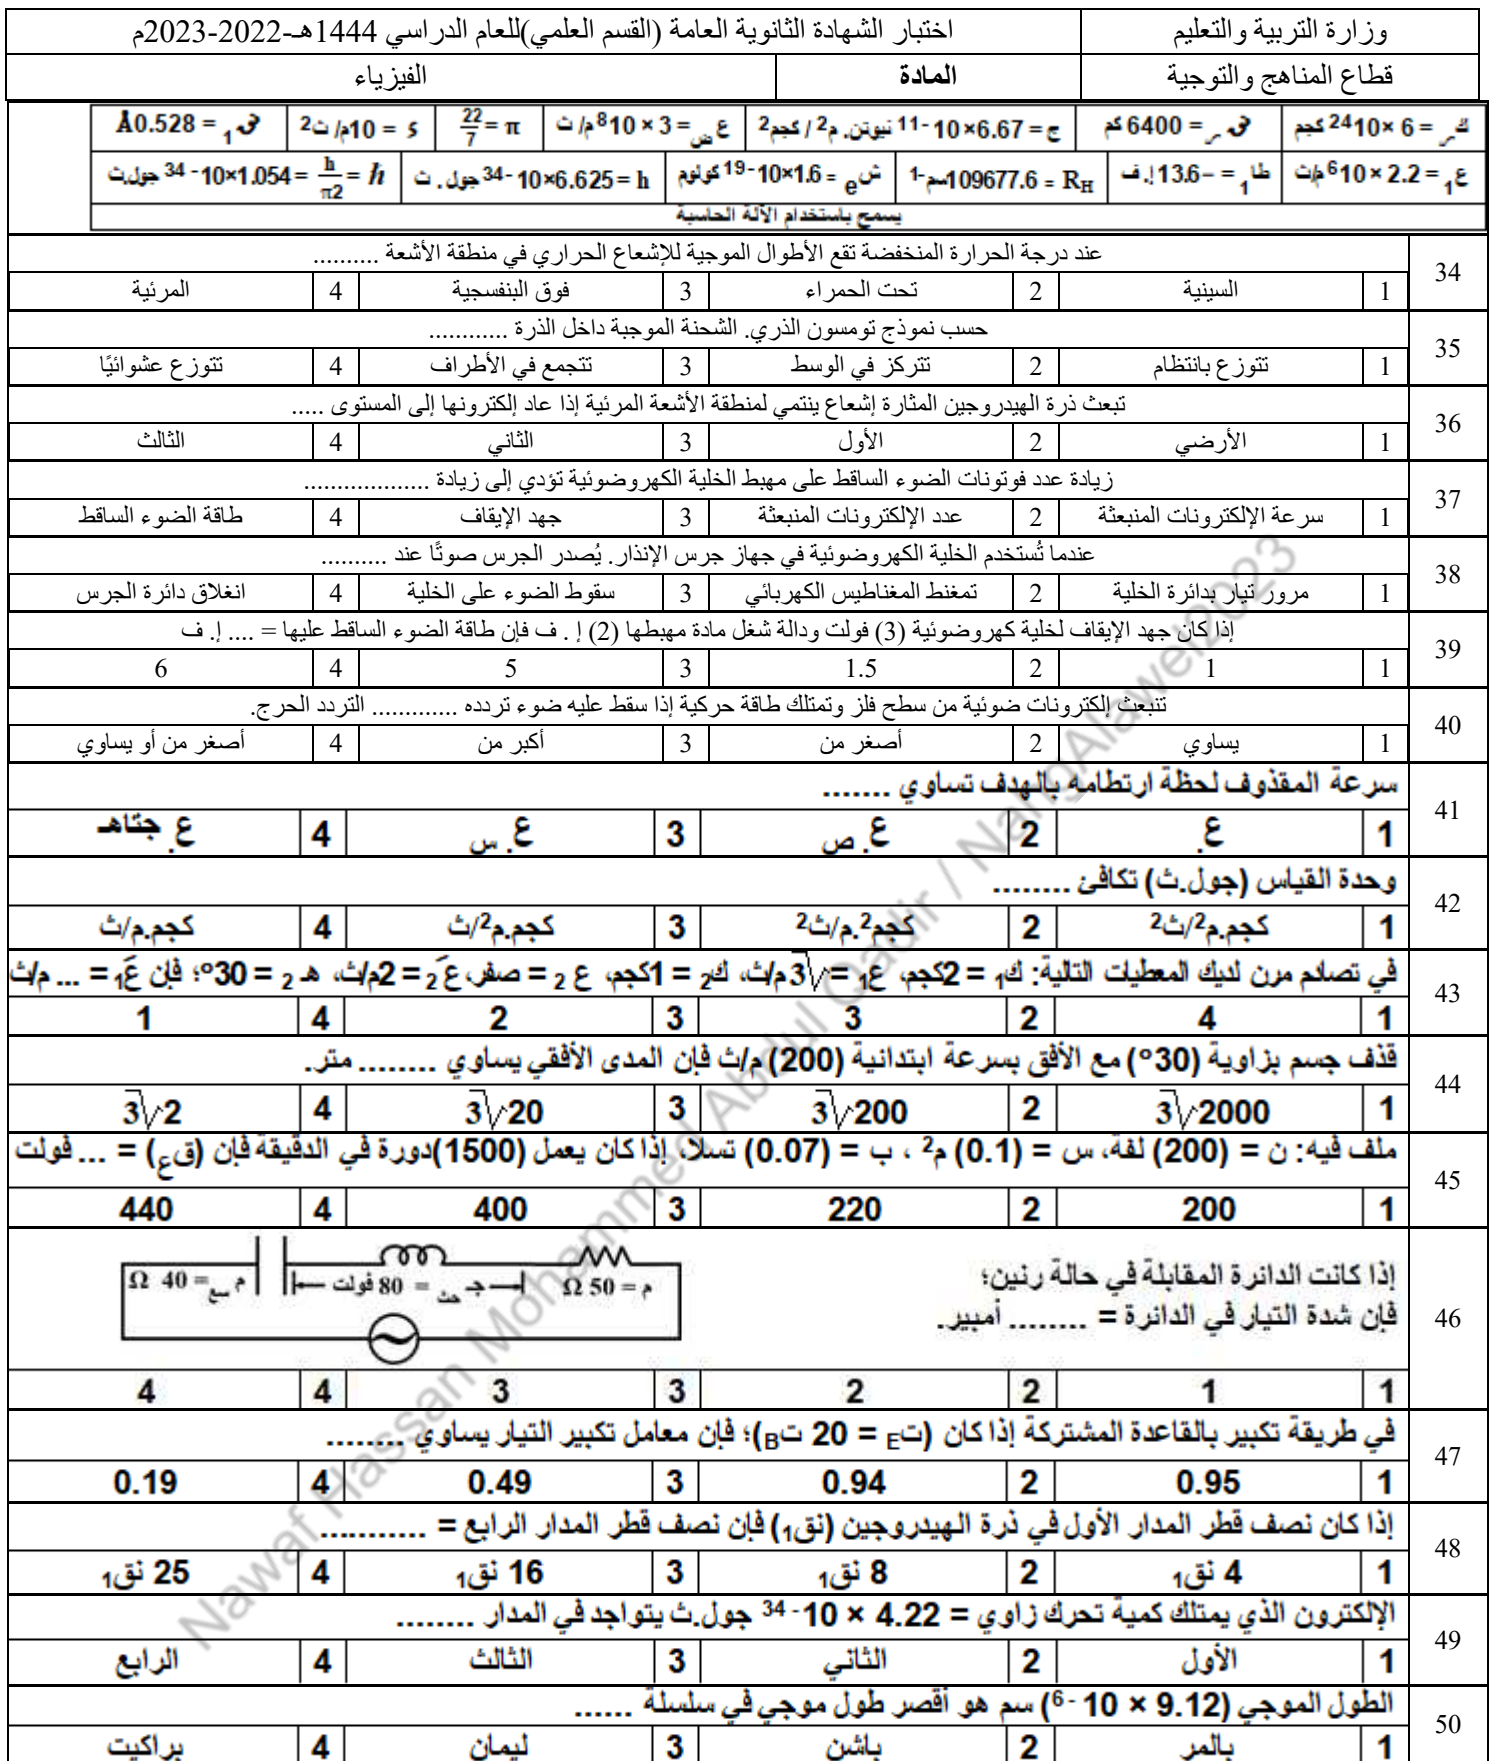 وزارة التربية والتعليم اختبار الشهادة الثانوية العامة (القسم العلمي)للعام الدراسي 1444هـ-2022-2023م
قطاع المناهج والتوجية المادة الفيزياء
ك ر = 6 ×10 24 كجم نق ر = 6400 كم ج = 6.67×10 -11 نيوتن. م2 / كجم2 ع ض = 3 × 10 8 م/ ث π = 22/7 د = 10م/ ث2 نق 1 = 0.528Å
ع 1 = 2.2 ×10 6 م/ث طا 1 = –13.6إ. ف R H = 109677.6سم-1 ش e = 1.6×10 -19 كولوم h = 6.625×10 -34 جول . ث ℏ = h/π2 = 1.054×10 -34 جول.ث
يسمح باستخدام الآلة الحاسبة
34 عند درجة الحرارة المنخفضة تقع الأطوال الموجية للإشعاع الحراري في منطقة الأشعة ..........
1 السينية 2 تحت الحمراء 3 فوق البنفسجية 4 المرئية
35 حسب نموذج تومسون الذري. الشحنة الموجبة داخل الذرة ............
1 تتوزع بانتظام 2 تتركز في الوسط 3 تتجمع في الأطراف 4 تتوزع عشوائيًا
36 تبعث ذرة الهيدروجين المثارة إشعاع ينتمي لمنطقة الأشعة المرئية إذا عاد إلكترونها إلى المستوى .....
1 الأرضي 2 الأول 3 الثاني 4 الثالث
37 زيادة عدد فوتونات الضوء الساقط على مهبط الخلية الكهروضوئية تؤدي إلى زيادة ...................
1 سرعة الإلكترونات المنبعثة 2 عدد الإلكترونات المنبعثة 3 جهد الإيقاف 4 طاقة الضوء الساقط
38 عندما تُستخدم الخلية الكهروضوئية في جهاز جرس الإنذار. يُصدر الجرس صوتًا عند ..........
1 مرور تيار بدائرة الخلية 2 تمغنط المغناطيس الكهربائي 3 سقوط الضوء على الخلية 4 انغلاق دائرة الجرس
39 إذا كان جهد الإيقاف لخلية كهروضوئية (3) فولت ودالة شغل مادة مهبطها (2) إ . ف فإن طاقة الضوء الساقط عليها = .... إ. ف
1 1 2 1.5 3 5 4 6
40 تنبعث إلكترونات ضوئية من سطح فلز وتمتلك طاقة حركية إذا سقط عليه ضوء تردده ............. التردد الحرج.
1 يساوي 2 أصغر من 3 أكبر من 4 أصغر من أو يساوي
41 سرعة المقذوف لحظة ارتطامه بالهدف تساوي .......
1 ع. 2 ع. ص 3 ع. س 4 ع. جتاهـ
42 وحدة القياس (جول.ث) تكافئ ........
1 كجم.م2/ث2 2 كجم2.م/ث2 3 كجم.م2/ث 4 كجم.م/ث
43 في تصادم مرن لديك المعطيات التالية: ك1 = 2كجم، ع1 = √3م/ث، ك2 = 1كجم، ع 2 = صفر، عَ 2 = 2م/ث، هـ 2 = 30°؛ فإن عَ1 = ... م/ث
1 4 2 3 3 2 4 1
44 قذف جسم بزاوية (30°) مع الأفق بسرعة ابتدائية (200) م/ث فإن المدى الأفقي يساوي ........ متر.
1 2000√3 2 200√3 3 20√3 4 2√3
45 ملف فيه: ن = (200) لفة، س = (0.1) م2 ، ب = (0.07) تسلا، إذا كان يعمل (1500)دورة في الدقيقة فإن (قع) = ... فولت
1 200 2 220 3 400 4 440
46 إذا كانت الدائرة المقابلة في حالة رنين؛
فإن شدة التيار في الدائرة = ........ أمبير.
م = 50 Ω جـ حث = 80 فولت م سع = 40 Ω
1 1 2 2 3 3 4 4
47 في طريقة تكبير بالقاعدة المشتركة إذا كان (تE = 20 تB)؛ فإن معامل تكبير التيار يساوي ........
1 0.95 2 0.94 3 0.49 4 0.19
48 إذا كان نصف قطر المدار الأول في ذرة الهيدروجين (نق1) فإن نصف قطر المدار الرابع = ...........
1 4 نق1 2 8 نق1 3 16 نق1 4 25 نق1
49 الإلكترون الذي يمتلك كمية تحرك زاوي = 4.22 × 10 -34 جول.ث يتواجد في المدار ........
1 الأول 2 الثاني 3 الثالث 4 الرابع
50 الطول الموجي (9.12 × 10 -6) سم هو أقصر طول موجي في سلسلة ......
1 بالمر 2 باشن 3 ليمان 4 براكيت
Nawaf Hassan Mohammed Abdul Qadir / NangAlawei2023